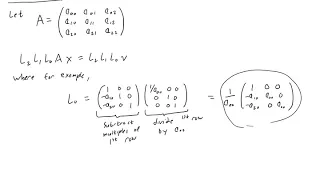 Let A = ( a₀₀ a₀₁ a₀₂
a₁₀ a₁₁ a₁₂
a₂₀ a₂₁ a₂₂ )
L₂ L₁ L₀ A x = L₂ L₁ L₀ v
where for example,
L₀ = ( 1 0 0 ; -a₁₀ 1 0 ; -a₂₀ 0 1 ) ( 1/a₀₀ 0 0 ; 0 1 0 ; 0 0 1 ) = 1/a₀₀ ( 1 0 0 ; -a₁₀ a₀₀ 0 ; -a₂₀ 0 a₀₀ )
subtract multiples of 1st row
divide 1st row by a₀₀